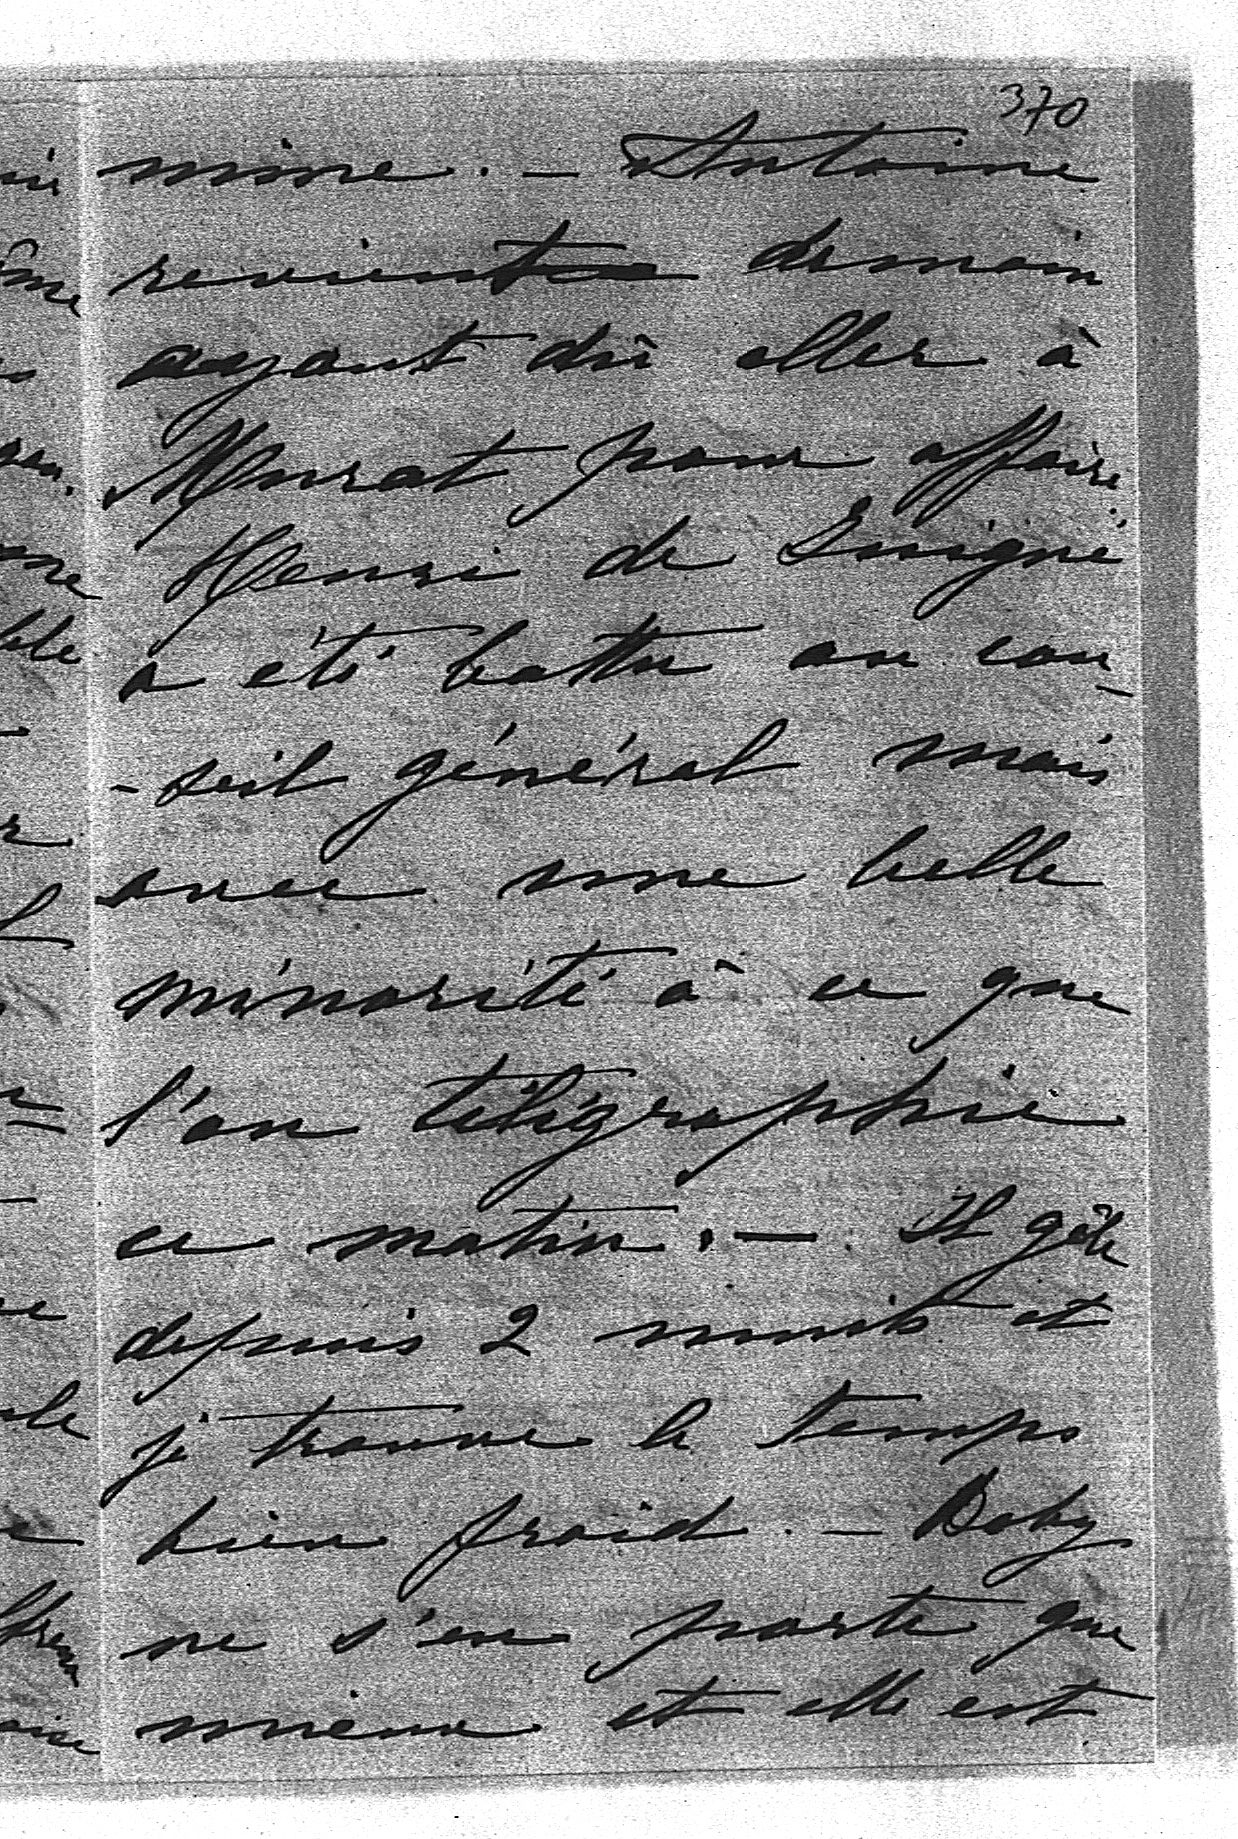 370
mine. — Antoine
revient demain
ayant dû aller à
Murat pour affaire
Henri de
a été battu au con-
-seil général mais
avec une belle
minorité à ce que
l'on télégraphie
ce matin. — Il gèle
depuis 2 nuits et
je trouve le temps
bien froid. — Baby
ne s'en porte que
mieux et elle est